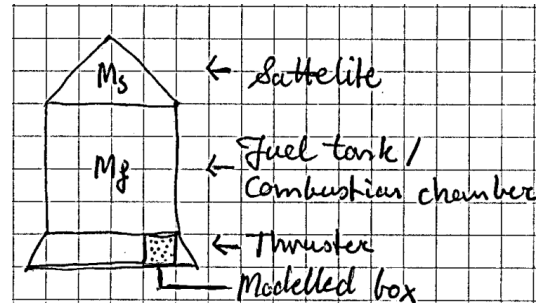 Ms
← Sattelite
Mf
← Fuel tank /
Combustian chamber
← Thruster
Modelled box